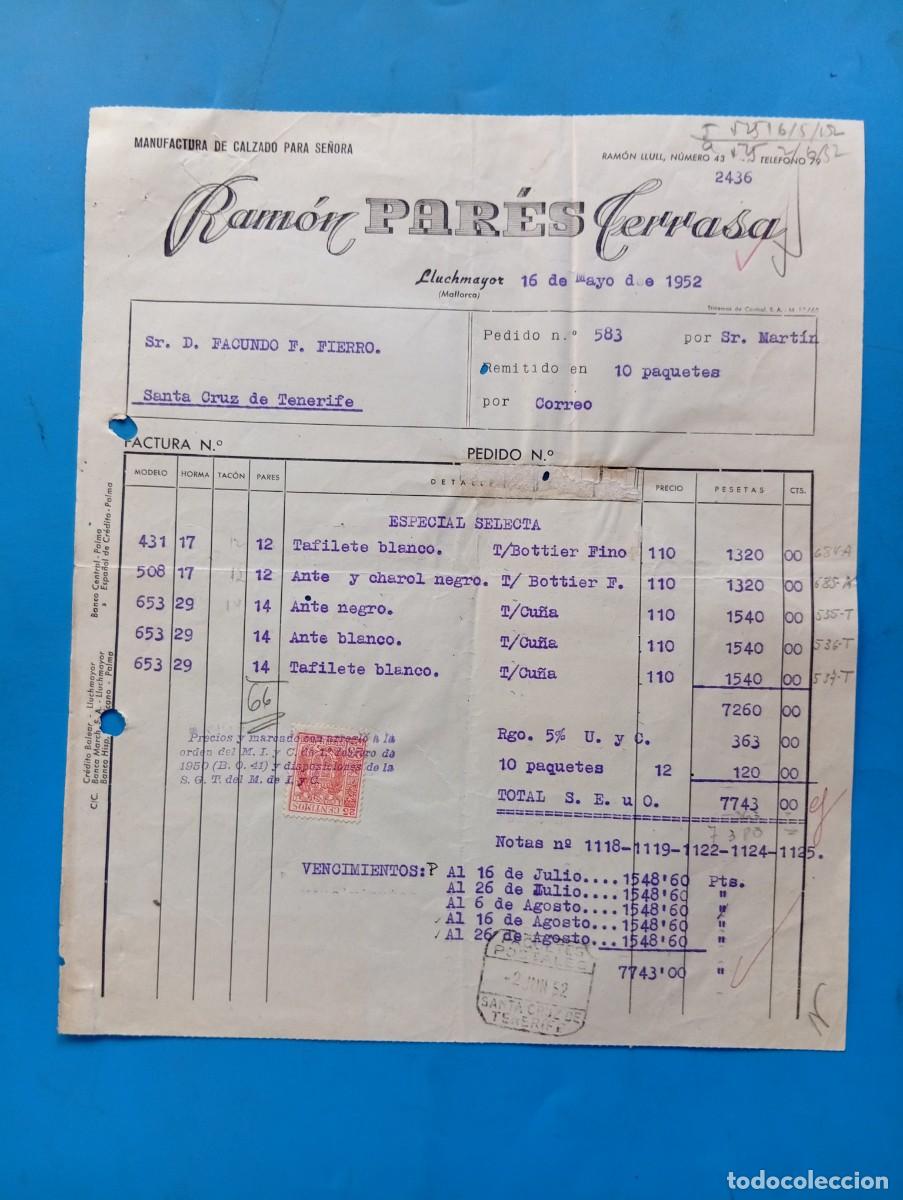 MANUFACTURA DE CALZADO PARA SEÑORA
RAMÓN LLULL, NÚMERO 43 TELÉFONO 79
2436
Ramón PARÉS Terrasa
Lluchmayor 16 de Mayo de 1952
(Mallorca)
Sr. D. FACUNDO F. FIERRO.
Santa Cruz de Tenerife
Pedido n.º 583 por Sr. Martín
Remitido en 10 paquetes
por Correo
FACTURA N.º PEDIDO N.º
MODELO HORMA TACÓN PARES DETALLE PRECIO PESETAS CTS.
ESPECIAL SELECTA
431 17 12 12 Tafilete blanco. T/Bottier Fino 110 1320 00 684-A
508 17 12 12 Ante y charol negro. T/ Bottier F. 110 1320 00 685-A
653 29 14 Ante negro. T/Cuña 110 1540 00 535-T
653 29 14 Ante blanco. T/Cuña 110 1540 00 536-T
653 29 14 Tafilete blanco. T/Cuña 110 1540 00 537-T
66
7260 00
Rgo. 5% U. y C. 363 00
10 paquetes 12 120 00
TOTAL S. E. u O. 7743 00
7380
Precios y marcado con arreglo a la
orden del M. I. y C. de 1º febrero de
1950 (B. O. 41) y disposiciones de la
S. G. T. del M. de I. y C.
25 CENTIMOS
Notas nº 1118-1119-1122-1124-1125.
VENCIMIENTOS: P Al 16 de Julio....1548'60 Pts.
Al 26 de Julio....1548'60 "
Al 6 de Agosto....1548'60 "
Al 16 de Agosto...1548'60 "
Al 26 de Agosto...1548'60 "
7743'00 "
PAQUETES
POSTALES
-2 JUN 52
SANTA CRUZ DE
TENERIFE
C/C. Crédito Balear - Lluchmayor
Banca March, S. A. - Lluchmayor
Banco Hisp. - Palma
Banco Central - Palma
» Español de Crédito - Palma
todocoleccion